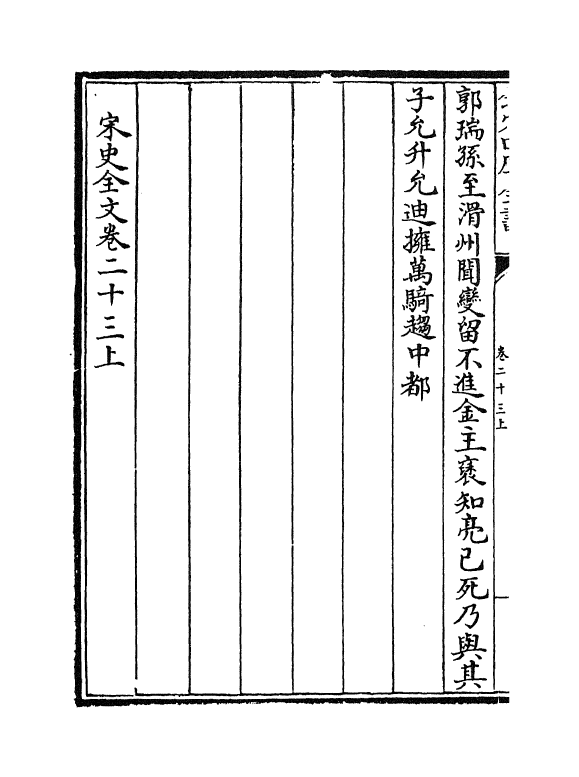 郭瑞孫至滑州聞變留不進金主褎知亮已死乃與其
子允升允迪擁萬騎趨中都
宋史全文卷二十三上
卷二十三上